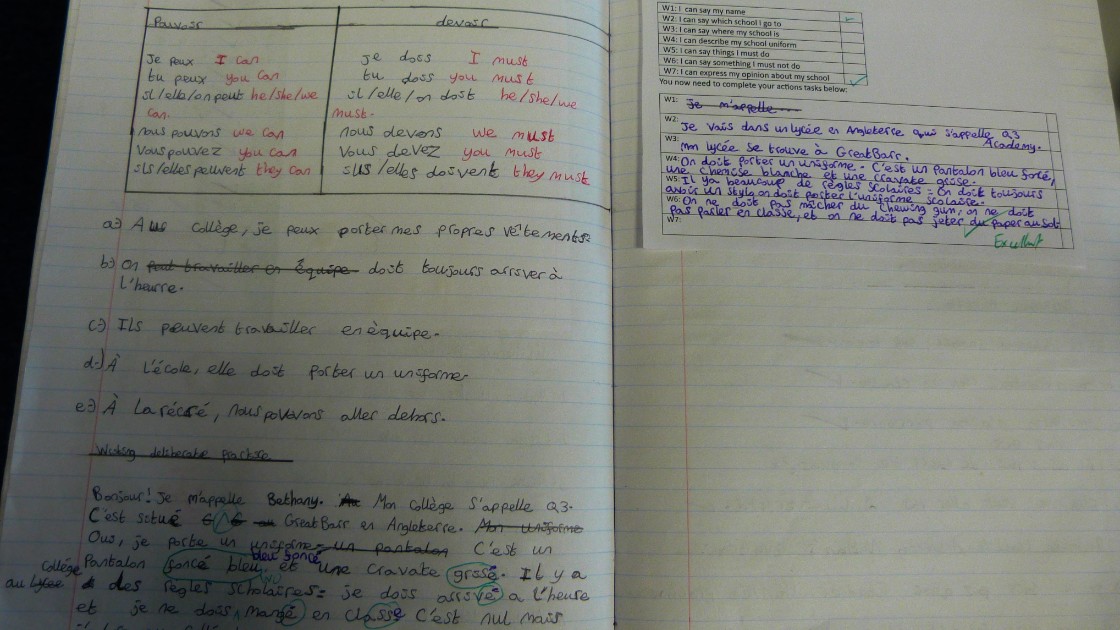 Pouvoir
devoir
Je peux I can
tu peux you can
il/elle/on peut he/she/we
can.
nous pouvons we can
Vous pouvez you can
ils/elles peuvent they can
je doss I must
tu doss you must
il/elle/on doit he/she/we
must.
nous devons we must
Vous devez you must
ils/elles doivent they must
a) Au collège, je peux porter mes propres vêtements
b) on peut travailler en équipe doit toujours arriver à
l'heurre.
c) Ils peuvent travailler en équipe.
d) À l'école, elle doit porter un uniforme
e) À La récré, nous povovons aller dehors.
deliberate
Bonjour! Je m'appelle Bethany. Mon collège s'appelle Q3.
C'est situé Great Barr en Angleterre. Mon uniforme
Oui, je porte un uniforme un pantalon C'est un
bleu foncé
Pantalon foncé bleu et une cravate grise. Il y a
collège
au lycee des regles scholaires: je dois arrivé a l'heure
et je ne dois mangé en classe C'est nul mais
W1: I can say my name
W2: I can say which school I go to
W3: I can say where my school is
W4: I can describe my school uniform
W5: I can say things I must do
W6: I can say something I must not do
W7: I can express my opinion about my school
You now need to complete your actions tasks below:
W1: Je m'appelle
W2:
Je vais dans un lycée en Angleterre qui s'appelle Q3
Academy.
W3: Mon lycée se trouve à Great Barr.
W4: On doit porter un uniforme. C'est un pantalon bleu foncé,
une chemise blanche et une cravate grise.
W5: Il y a beaucoup de règles scolaires: on doit toujours
avoir un stylo, on doit porter l'uniforme scolaire.
W6: On ne doit pas mâcher du chewing gum, on ne doit
pas parler en classe, et on ne doit pas jeter du paper au sol.
W7:
Excellent